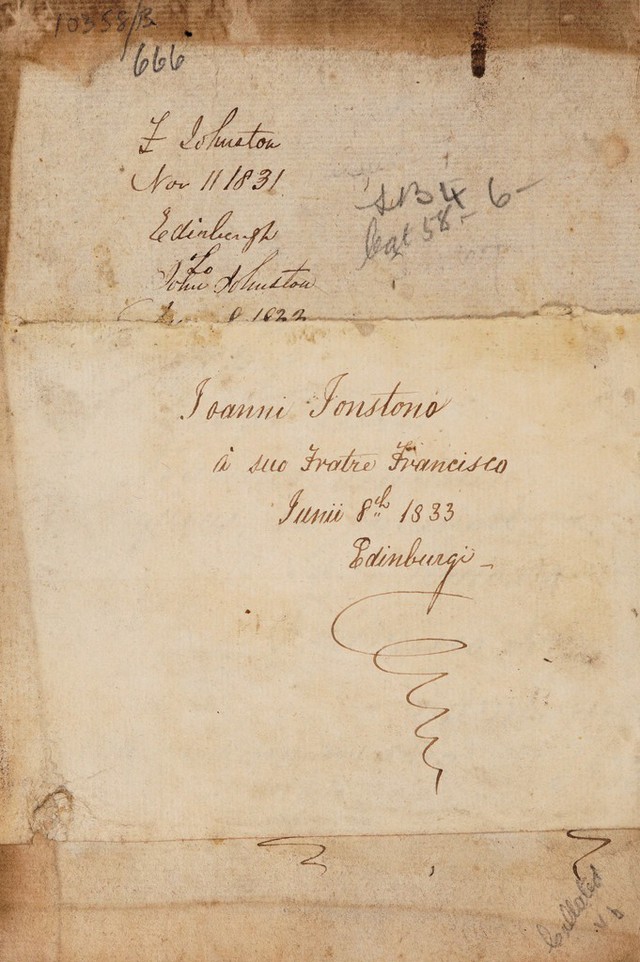 10358/B
666
F Johnston
Nov 11 1831
Edinburgh
To
John Johnston
8 1822
6-
58-
Joanni Jonstono
à suo Fratre Francisco
Junii 8th 1833
Edinburgi
Collated